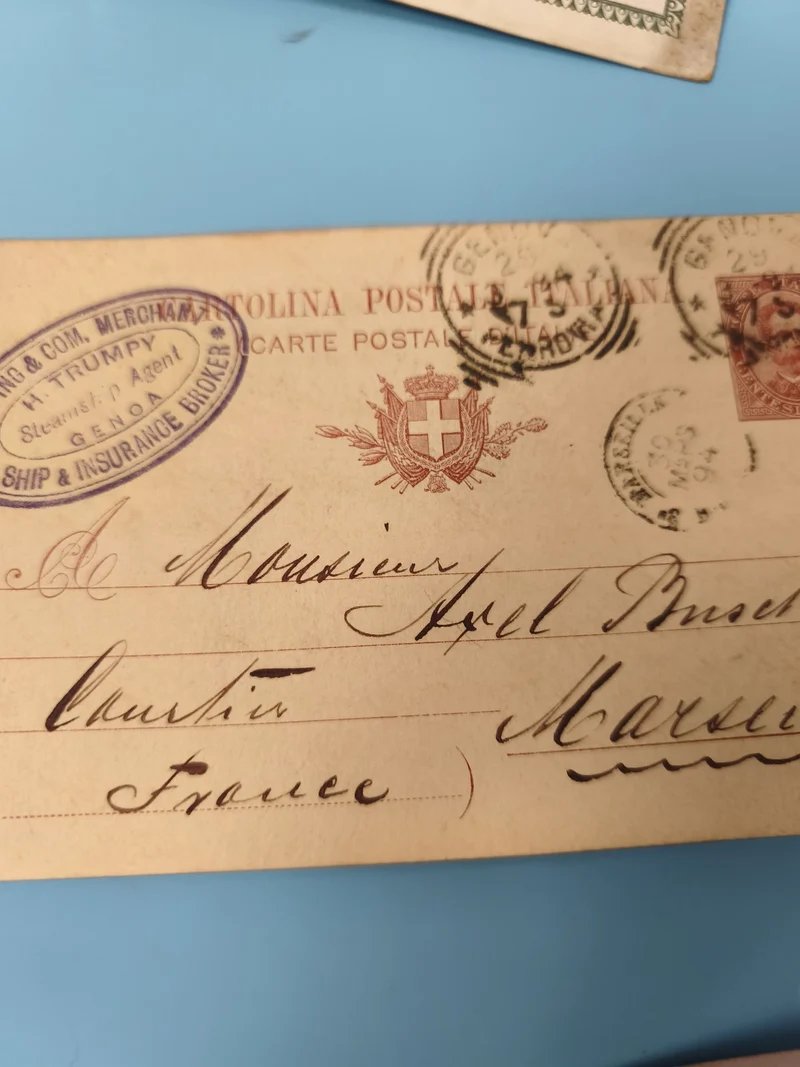 CARTOLINA POSTALE ITALIANA
CARTE POSTALE D'ITALIE
ING & COM. MERCHANT
H. TRUMPY
Steamship Agent
GENOA
SHIP & INSURANCE BROKER
GENOVA
29
94
7 S
FERROVIA
GENOVA
29
94
7 S
MARSEILLE
30
MARS
94
A Monsieur
Axel Busch
Courtier
Marsei
France